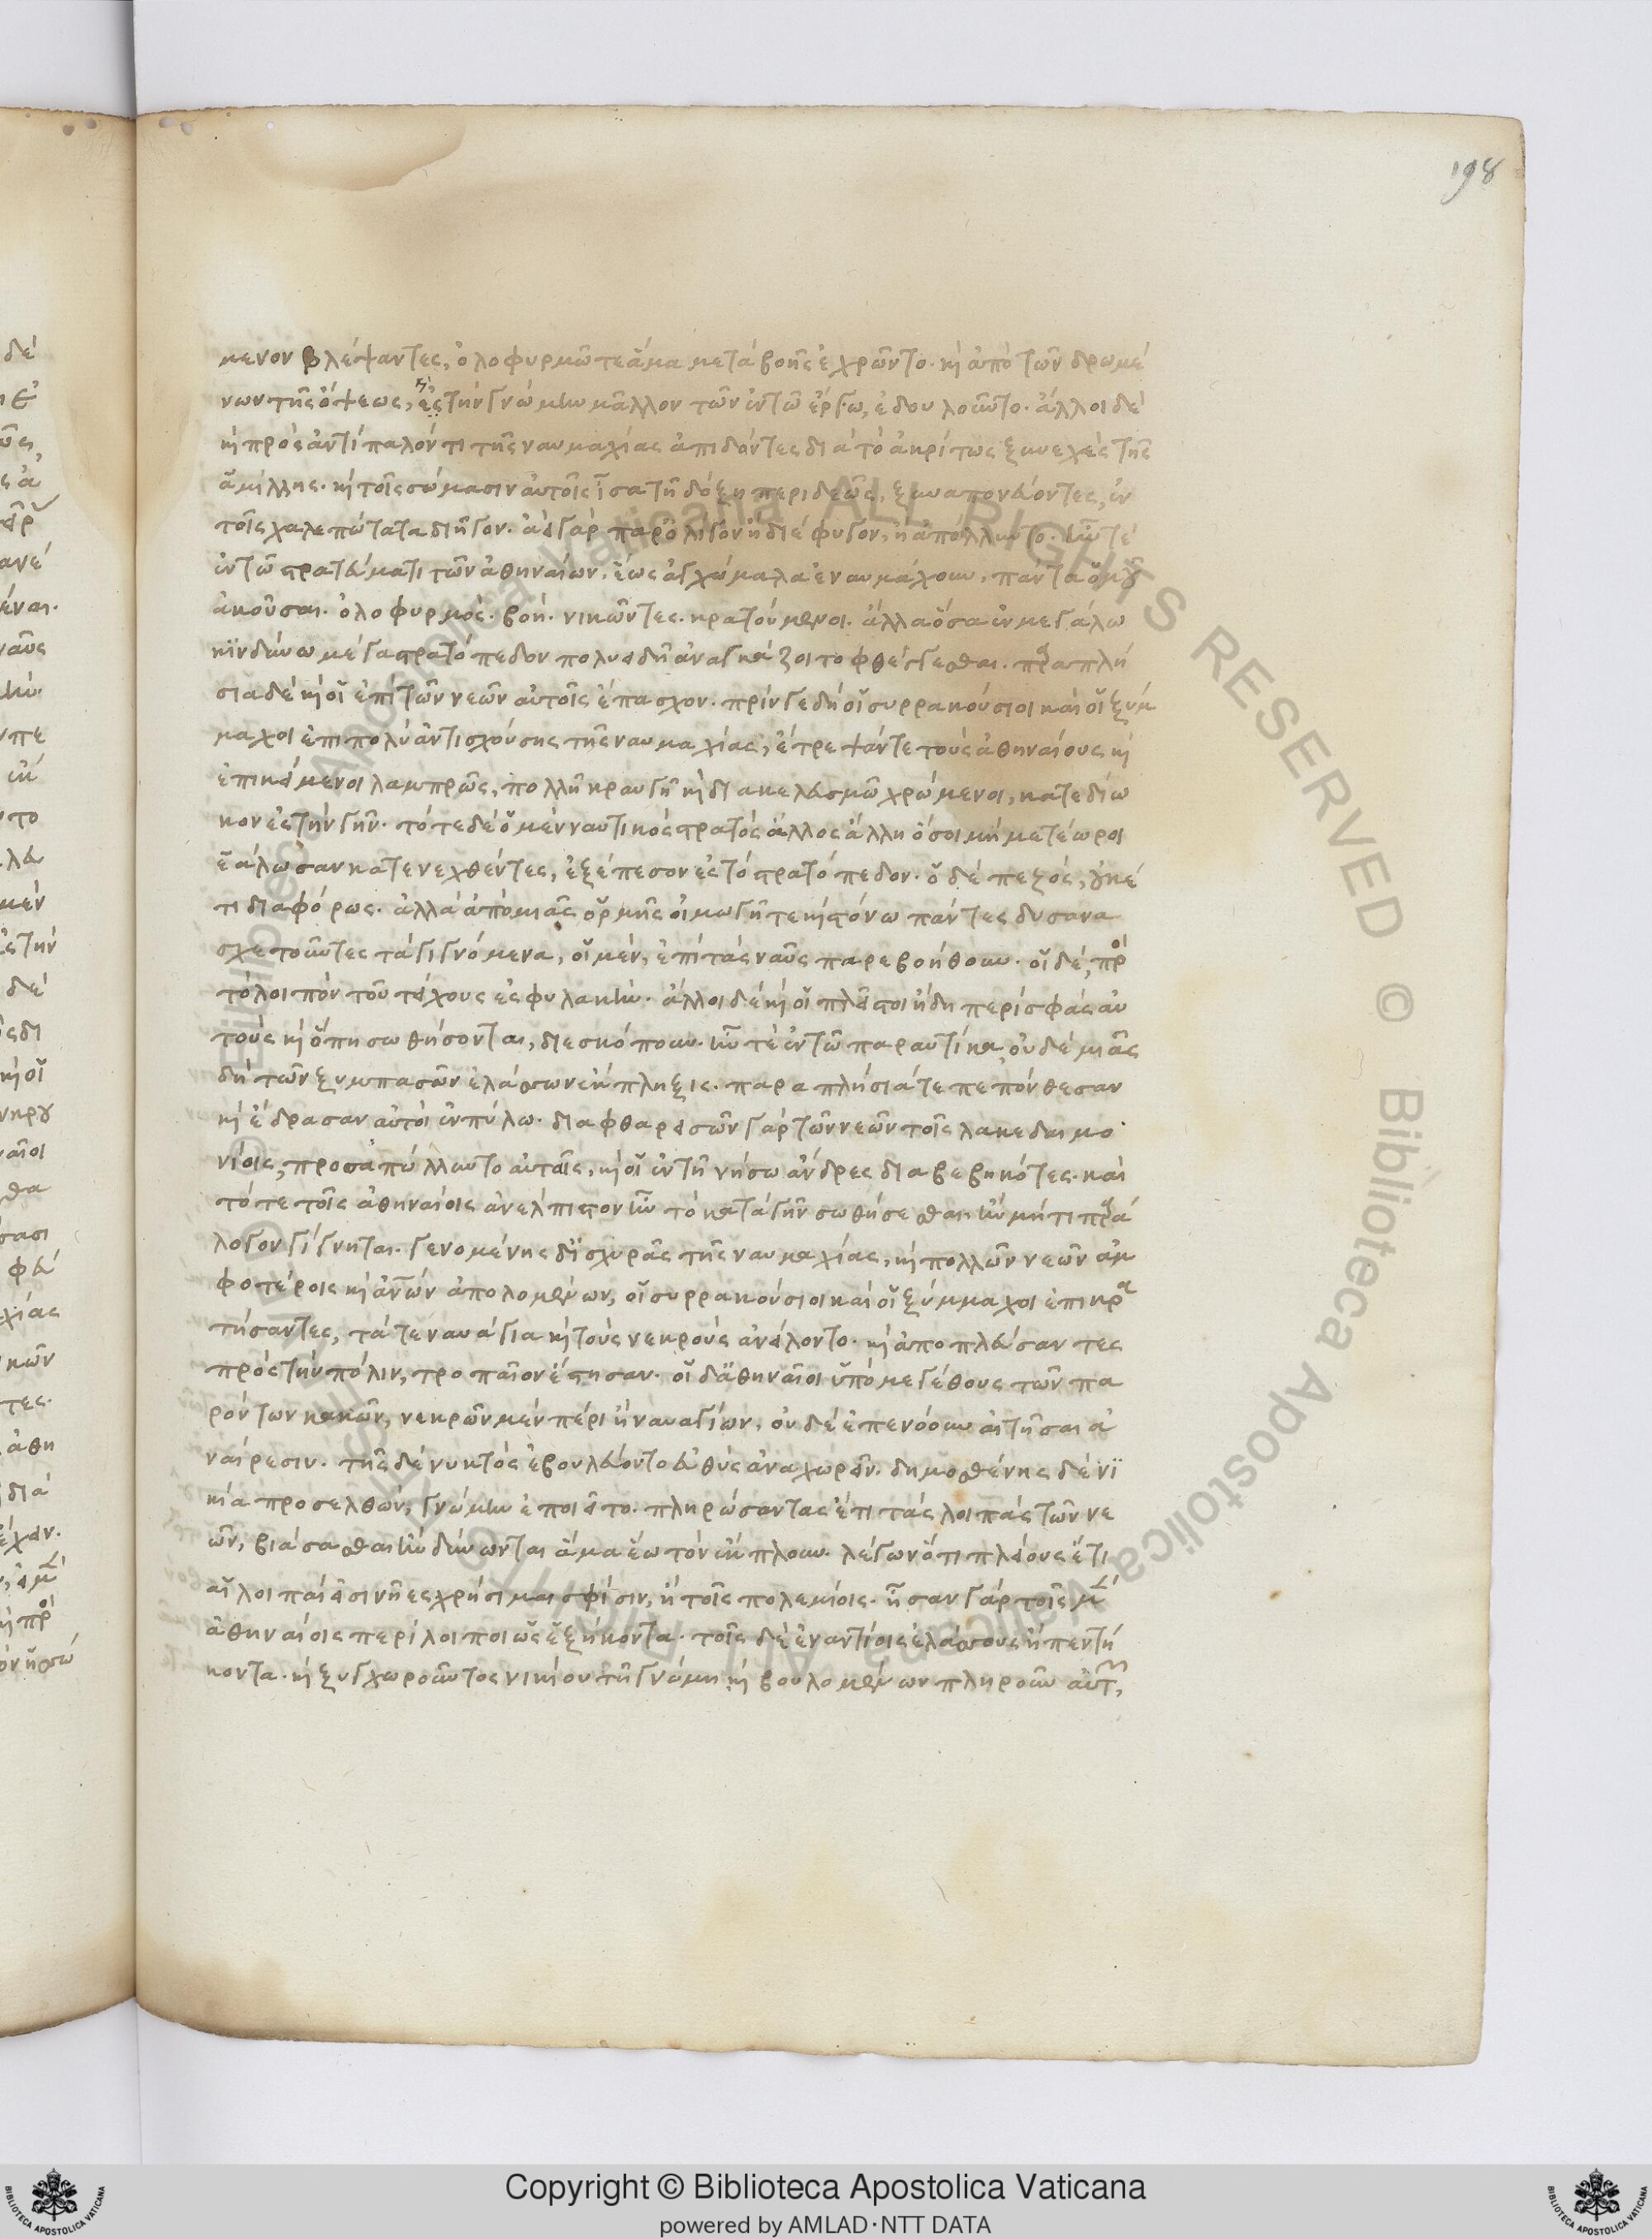 198
μενον βλέψαντες, ὀλοφυρμῶ τε ἅμα μετὰ βοῆς ἐχρῶντο· κὶ ἀπὸ τῶν δρωμέ
νων τῆς ὄψεως, κὶ ἐς τὴν γνώμην μᾶλλον τῶν ἐν τῶ ἔργω, ἐδουλοῦντο· ἄλλοι δὲ
κὶ πρὸς ἀντίπαλόν τι τῆς ναυμαχίας ἀπιδόντες διὰ τὸ ἀκρίτως ξυνεχὲς τῆς
ἁμίλλης· κὶ τοῖς σώμασιν αὐτοῖς ἴσα τῆ δόξη περιδεῶς, ξυναπονεύοντες, ἐν
τοῖς χαλεπώτατα διῆγον· ἀεὶ γὰρ παρ' ὀλίγον ἢ διέφυγον, ἢ ἀπόλλυντο· ἦν τε
ἐν τῶ στρατεύματι τῶν ἀθηναίων, ἕως ἀγχώμαλα ἐναυμάχουν, πάντα ὁμοῦ
ἀκοῦσαι· ὀλοφυρμὸς· βοὴ· νικῶντες· κρατούμενοι· ἄλλα ὅσα ἐν μεγάλω
κινδύνω μέγα στρατόπεδον πολυειδῆ ἀναγκάζοιτο φθέγγεσθαι· παραπλή
σια δὲ κὶ οἱ ἐπὶ τῶν νεῶν αὐτοῖς ἔπασχον· πρίν γε δὴ οἱ συρρακούσιοι καὶ οἱ ξύμ
μαχοι ἐπιπολὺ ἀντισχούσης τῆς ναυμαχίας, ἔτρεψάν τε τοὺς ἀθηναίους κὶ
ἐπικείμενοι λαμπρῶς, πολλῆ κραυγῆ κὶ διακελευσμῶ χρώμενοι, κατεδίω
κον ἐς τὴν γῆν· τότε δὲ ὁ μὲν ναυτικὸς στρατὸς ἄλλος ἄλλη ὅσοι μὴ μετέωροι
ἑάλωσαν κατενεχθέντες, ἐξέπεσον ἐς τὸ στρατόπεδον· ὁ δὲ πεζὸς, οὐκέ
τι διαφόρως· ἀλλὰ ἀπὸ μιᾶς ὁρμῆς οἰμωγῆ τε κὶ στόνω πάντες δυσανα
σχετοῦντες τὰ γιγνόμενα, οἱ μὲν, ἐπὶ τὰς ναῦς παρεβοήθουν· οἱ δὲ, πρὸς
τὸ λοιπὸν τοῦ τείχους ἐς φυλακὴν· ἄλλοι δὲ κὶ οἱ πλεῖστοι ἤδη περὶ σφᾶς αὐ
τοὺς κὶ ὅπη σωθήσονται, διεσκόπουν· ἦν τὲ ἐν τῶ παραυτίκα, οὐδέ μιᾶς
δὴ τῶν ξυμπασῶν ἐλάσσων ἔκπληξις· παραπλήσιά τε πεπόνθεσαν
κὶ ἔδρασαν αὐτοὶ ἐν πύλω· διαφθαρεισῶν γὰρ τῶν νεῶν τοῖς λακεδαιμο
νίοις, προσαπώλλυντο αὐταῖς, κὶ οἱ ἐν τῆ νήσω ἄνδρες διαβεβηκότες· καὶ
τότε τοῖς ἀθηναίοις ἀνέλπιστον ἦν τὸ κατὰ γῆν σωθήσεσθαι ἢν μή τι παρά
λογον γίγνηται· γενομένης δ' ἰσχυρᾶς τῆς ναυμαχίας, κὶ πολλῶν νεῶν ἀμ
φοτέροις κὶ ἀνῶν ἀπολομένων, οἱ συρρακούσιοι καὶ οἱ ξύμμαχοι ἐπικρα
τήσαντες, τά τε ναυάγια κὶ τοὺς νεκροὺς ἀνείλοντο· κὶ ἀποπλεύσαντες
πρὸς τὴν πόλιν, τροπαῖον ἔστησαν· οἱ δ' ἀθηναῖοι ὑπὸ μεγέθους τῶν πα
ρόντων κακῶν, νεκρῶν μὲν πέρι ἢ ναυαγίων, οὐδὲ ἐπενόουν αἰτῆσαι ἀ
ναίρεσιν· τῆς δὲ νυκτὸς ἐβουλεύοντο εὐθὺς ἀναχωρεῖν· δημοσθένης δὲ νι
κία προσελθὼν, γνώμην ἐποιεῖτο· πληρώσαντας ἔτι τὰς λοιπὰς τῶν νε
ῶν, βιάσασθαι ἢν δύνωνται ἅμα ἕω τὸν ἔκπλουν· λέγων ὅτι πλείους ἔτι
αἱ λοιπαί εἰσι νῆες χρήσιμαι σφίσιν, ἢ τοῖς πολεμίοις· ἦσαν γὰρ τοῖς μὲν
ἀθηναίοις περίλοιποι ὡς ἑξήκοντα· τοῖς δὲ ἐναντίοις ἐλάσσους ἢ πεντή
κοντα· κὶ ξυγχωροῦντος νικίου τῆ γνώμη κὶ βουλομένων πληροῦν αὐτῶν,
Copyright © Biblioteca Apostolica Vaticana
powered by AMLAD·NTT DATA